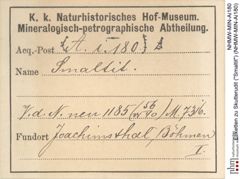 K. k. Naturhistorisches Hof-Museum.
Mineralogisch-petrographische Abtheilung.
Acq.-Post A. i. 180.
Name Smaltit.
V. d. N. neu 1185
Fundort Joachimsthal, Böhmen
I.
NHMW-MIN-A/180
Etiketten zu Skutterudit ("Smaltit") (NHMW-MIN-A/180)